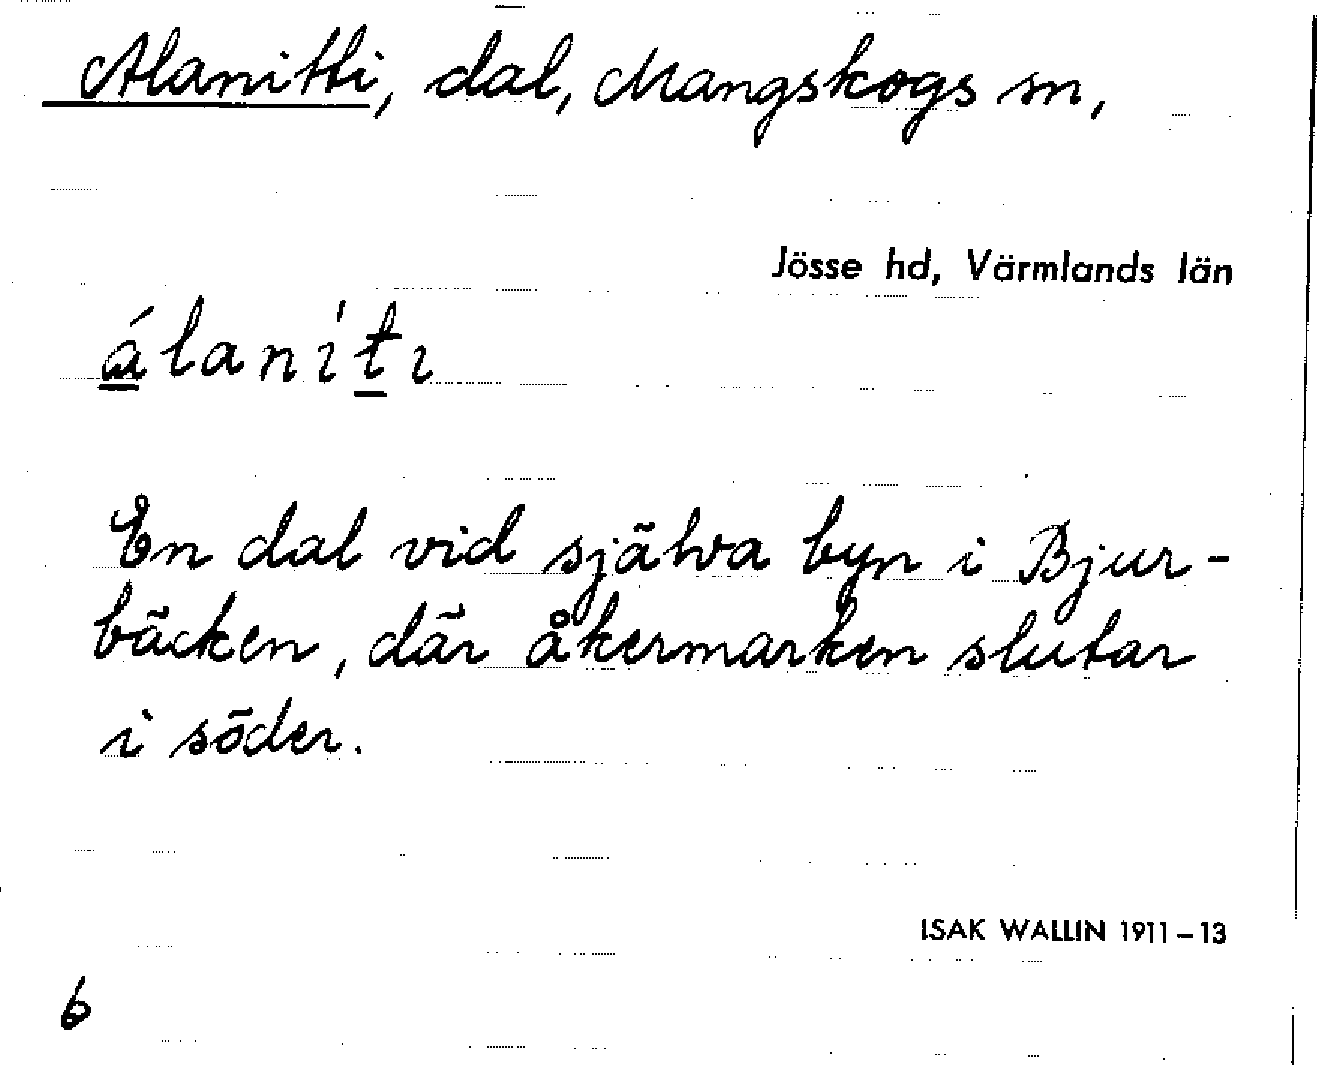 Alanitti, dal, Mangskogs sn,
Jösse hd, Värmlands län
álanı'tı
En dal vid själva byn i Bjur-
bäcken, där åkermarken slutar
i söder.
ISAK WALLIN 1911–13
6